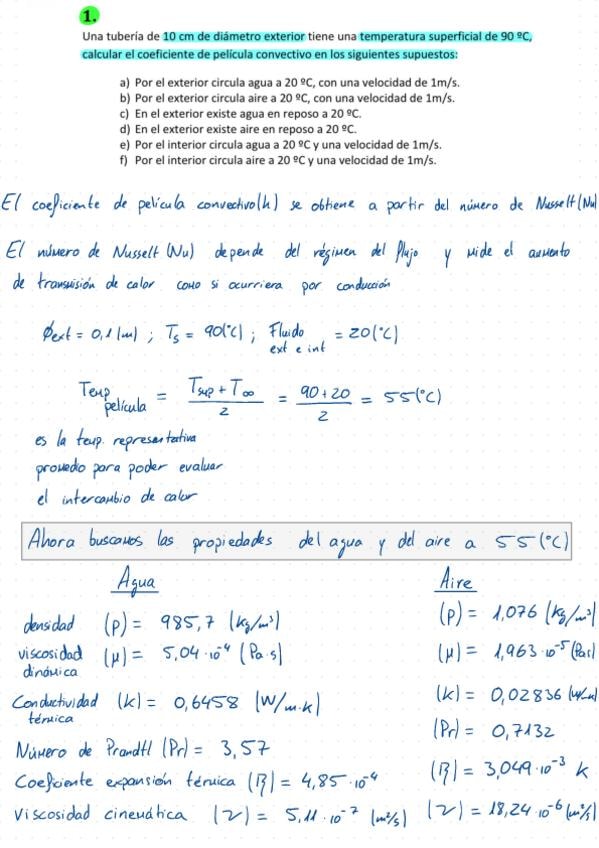 1.
Una tubería de 10 cm de diámetro exterior tiene una temperatura superficial de 90 ºC,
calcular el coeficiente de película convectivo en los siguientes supuestos:
a) Por el exterior circula agua a 20 ºC, con una velocidad de 1m/s.
b) Por el exterior circula aire a 20 ºC, con una velocidad de 1m/s.
c) En el exterior existe agua en reposo a 20 ºC.
d) En el exterior existe aire en reposo a 20 ºC.
e) Por el interior circula agua a 20 ºC y una velocidad de 1m/s.
f) Por el interior circula aire a 20 ºC y una velocidad de 1m/s.
El coeficiente de película convectivo (h) se obtiene a partir del número de Nusselt (Nu)
El número de Nusselt (Nu) depende del régimen del flujo y mide el aumento
de transmisión de calor como si ocurriera por conducción
Øext = 0,1 (m) ; Ts = 90(°C) ; Fluido ext e int = 20(°C)
Temp película = (Tsup + T∞)/2 = (90+20)/2 = 55(°C)
es la temp. representativa
promedio para poder evaluar
el intercambio de calor
Ahora buscamos las propiedades del agua y del aire a 55 (°C)
Agua
densidad (ρ) = 985,7 (kg/m³)
viscosidad dinámica (μ) = 5,04·10⁻⁴ (Pa·s)
Conductividad térmica (k) = 0,6458 (W/m·k)
Número de Prandtl (Pr) = 3,57
Coeficiente expansión térmica (β) = 4,85·10⁻⁴
Viscosidad cinemática (ν) = 5,11·10⁻⁷ (m²/s)
Aire
(ρ) = 1,076 (kg/m³)
(μ) = 1,963·10⁻⁵ (Pa·s)
(k) = 0,02836 (W/m
(Pr) = 0,7132
(β) = 3,049·10⁻³ K
(ν) = 18,24·10⁻⁶ (m²/s)